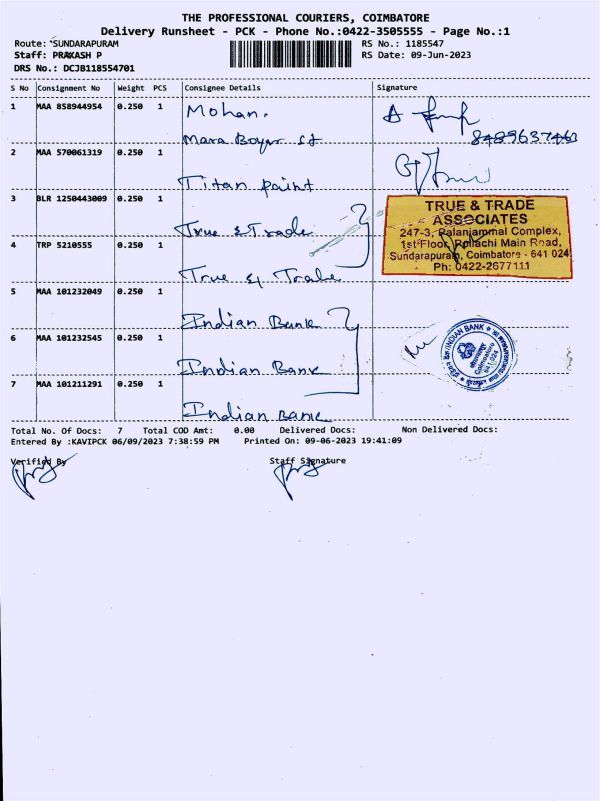 THE PROFESSIONAL COURIERS, COIMBATORE
Delivery Runsheet - PCK - Phone No.:0422-3505555 - Page No.:1
Route: SUNDARAPURAM
RS No.: 1185547
Staff: PRAKASH P
RS Date: 09-Jun-2023
DRS No.: DCJB118554701
S No Consignment No Weight PCS Consignee Details Signature
1 MAA 858944954 0.250 1 Mohan.
8489637463
2 MAA 570061319 0.250 1
Titan paint
3 BLR 1250443009 0.250 1
True & Trade
4 TRP 5210555 0.250 1
True & Trade
TRUE & TRADE
ASSOCIATES
247-3, Palanjammal Complex,
1st Floor, Pollachi Main Road,
Sundarapuram, Coimbatore - 641 024
Ph: 0422-2677111
5 MAA 101232049 0.250 1
Indian Bank
6 MAA 101232545 0.250 1
Indian Bank
7 MAA 101211291 0.250 1
Indian Bank
INDIAN BANK
Coimbatore
641 024
Total No. Of Docs: 7 Total COD Amt: 0.00 Delivered Docs: Non Delivered Docs:
Entered By :KAVIPCK 06/09/2023 7:38:59 PM Printed On: 09-06-2023 19:41:09
Verified By Staff Signature